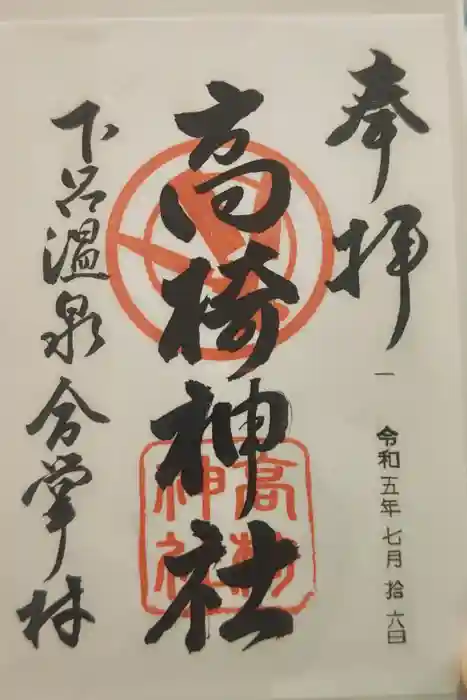 奉拝
一
令和五年七月拾六日
高椅神社
高椅神社
下呂温泉合掌村